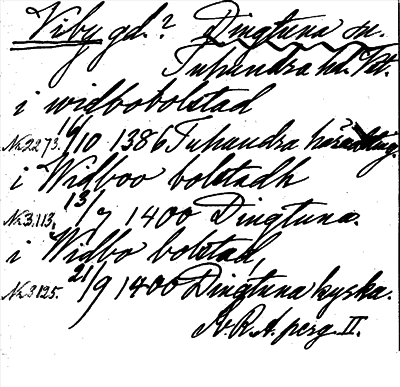 Viby gd.? Dingtuna sn.
Tuhundra hd. Vt.
i widbobolstad
Nr 2273. 16/10 1386 Tuhundra häradsting.
i Widboo bolstadh
Nr 3113. 13/7 1400 Dingtuna.
i Widbo bolstad,
Nr 3125. 21/9 1400 Dingtuna kyrka.
Sv. R. A. perg. II.